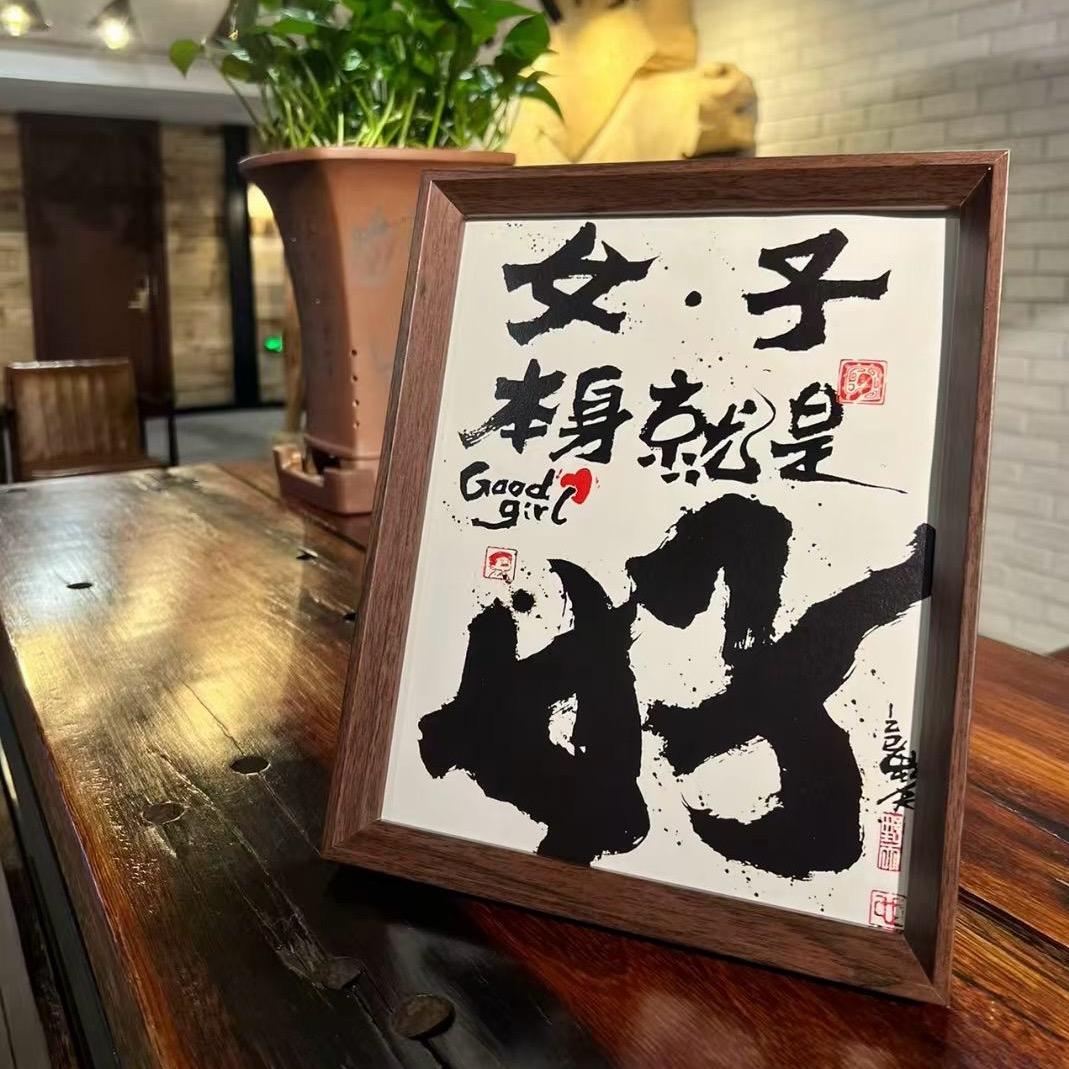 女·子
本身就是
Good
girl
好